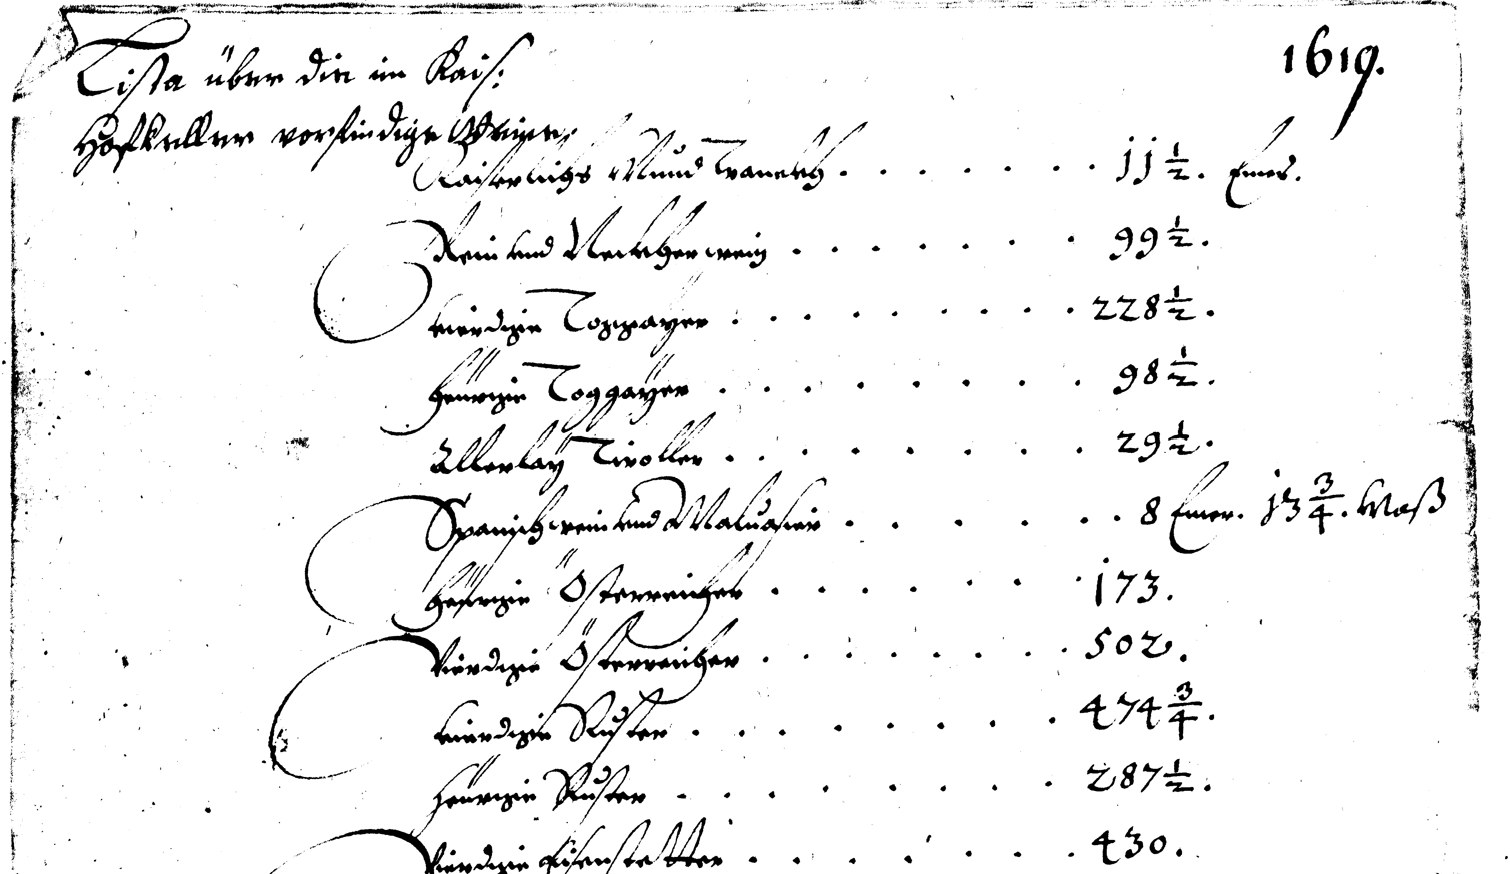 Lista über die im Kais:
1619.
Hofkeller vorfindige Weine.
Kaiserlichs Mund Tranckh . . . . . . . 11 1/2. Emer.
Rein und Neckher wein . . . . . . 99 1/2.
vierdige Toggayer . . . . . . . . 228 1/2.
Heurige Toggayer . . . . . . . . 98 1/2.
Allerlay Tiroller . . . . . . . . 29 1/2.
Spanisch wein und Maluasier . . . . . . 8 Emer. 13 3/4. Maß
Heurige Österreicher . . . . . . . 173.
Vierdige Österreicher . . . . . . . . 502.
vierdige Ruster . . . . . . . . 474 3/4.
Heurige Ruster . . . . . . . . 287 1/2.
Vierdige Eisenstetter . . . . . . . 430.